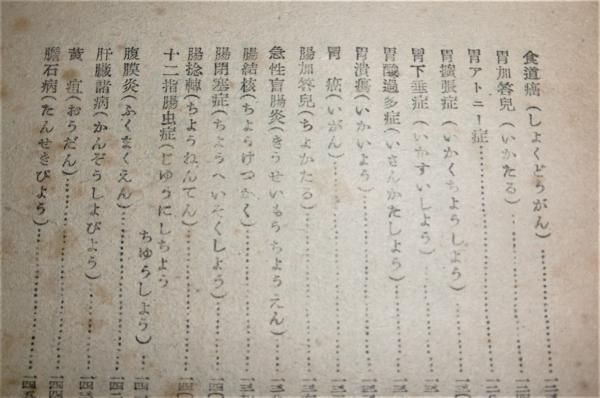 食道癌(しょくどうがん)
胃加答兒(いかたる)
胃アトニー症
胃擴張症(いかくちょうしょう)
胃下垂症(いかすいしょう)
胃酸過多症(いさんかたしょう)
胃潰瘍(いかいよう)
胃 癌(いがん)
腸加答兒(ちょかたる)
急性盲腸炎(きうせいもうちようえん)
腸結核(ちょうけつかく)
腸閉塞症(ちようへいそくしょう)
腸捻轉(ちようねんてん)
十二指腸虫症(じゆうにしちよう
ちゆうしよう)
腹膜炎(ふくまくえん)
肝臓諸病(かんぞうしよびよう)
黄 疸(おうだん)
膽石病(たんせきびよう)